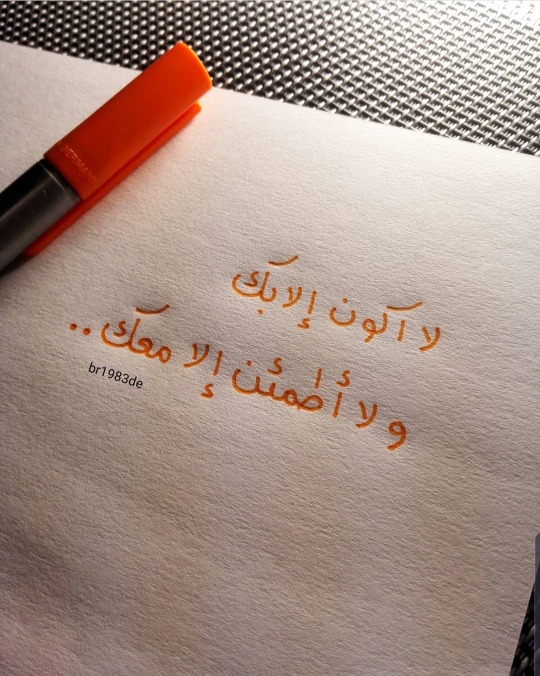 لا اكون إلا بك
ولا أطمئن إلا معك..
br1983de
GERMANY